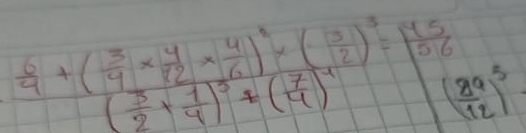 6/4 + (3/4 × 4/12 × 4/6)² × (3/2)³ = 45/56
(3/2 + 1/4)³ + (7/4)⁴
(89/12)⁵